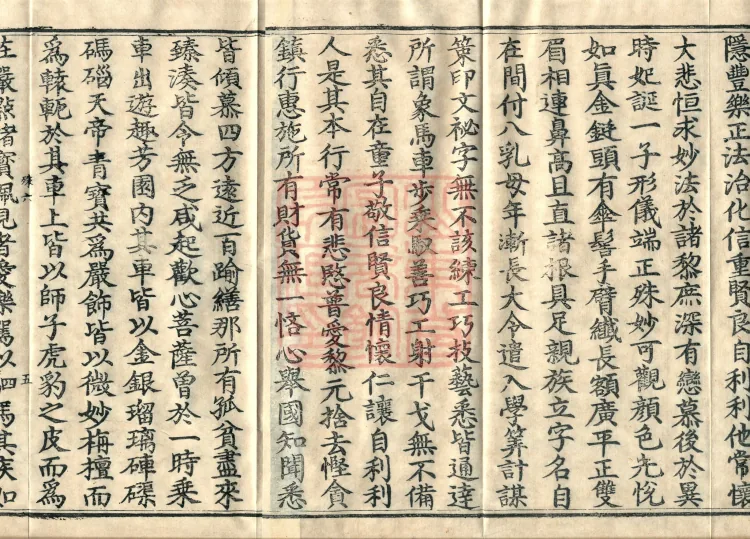 隱豐樂正法治化信重賢良自利利他常懷
大悲恒求妙法於諸黎庶深有戀慕後於異
時妃誕一子形儀端正殊妙可觀顏色光悅
如真金鋌頭有傘髻手臂纖長額廣平正雙
眉相連鼻高且直諸根具足親族立字名自
在間付八乳母年漸長大令遣入學筭計謀
策印文祕字無不該練工巧技藝悉皆通達
所謂象馬車步乘馭善巧工射干戈無不備
悉其自在童子敬信賢良情懷仁讓自利利
人是其本行常有悲愍普愛黎元捨去慳貪
鎮行惠施所有財貨無一悋心舉國知聞悉
皆傾慕四方遠近百踰繕那所有孤貧盡來
臻湊皆令無乏咸起歡心菩薩曾於一時乘
車出遊趣芳園內其車皆以金銀瑠璃硨磲
碼碯天帝青寶共為嚴飾皆以微妙栴檀而
為轅軛於其車上皆以師子虎豹之皮而為
殊六
五
莊嚴點諸寶珮見者愛樂駕以四馬其疾如